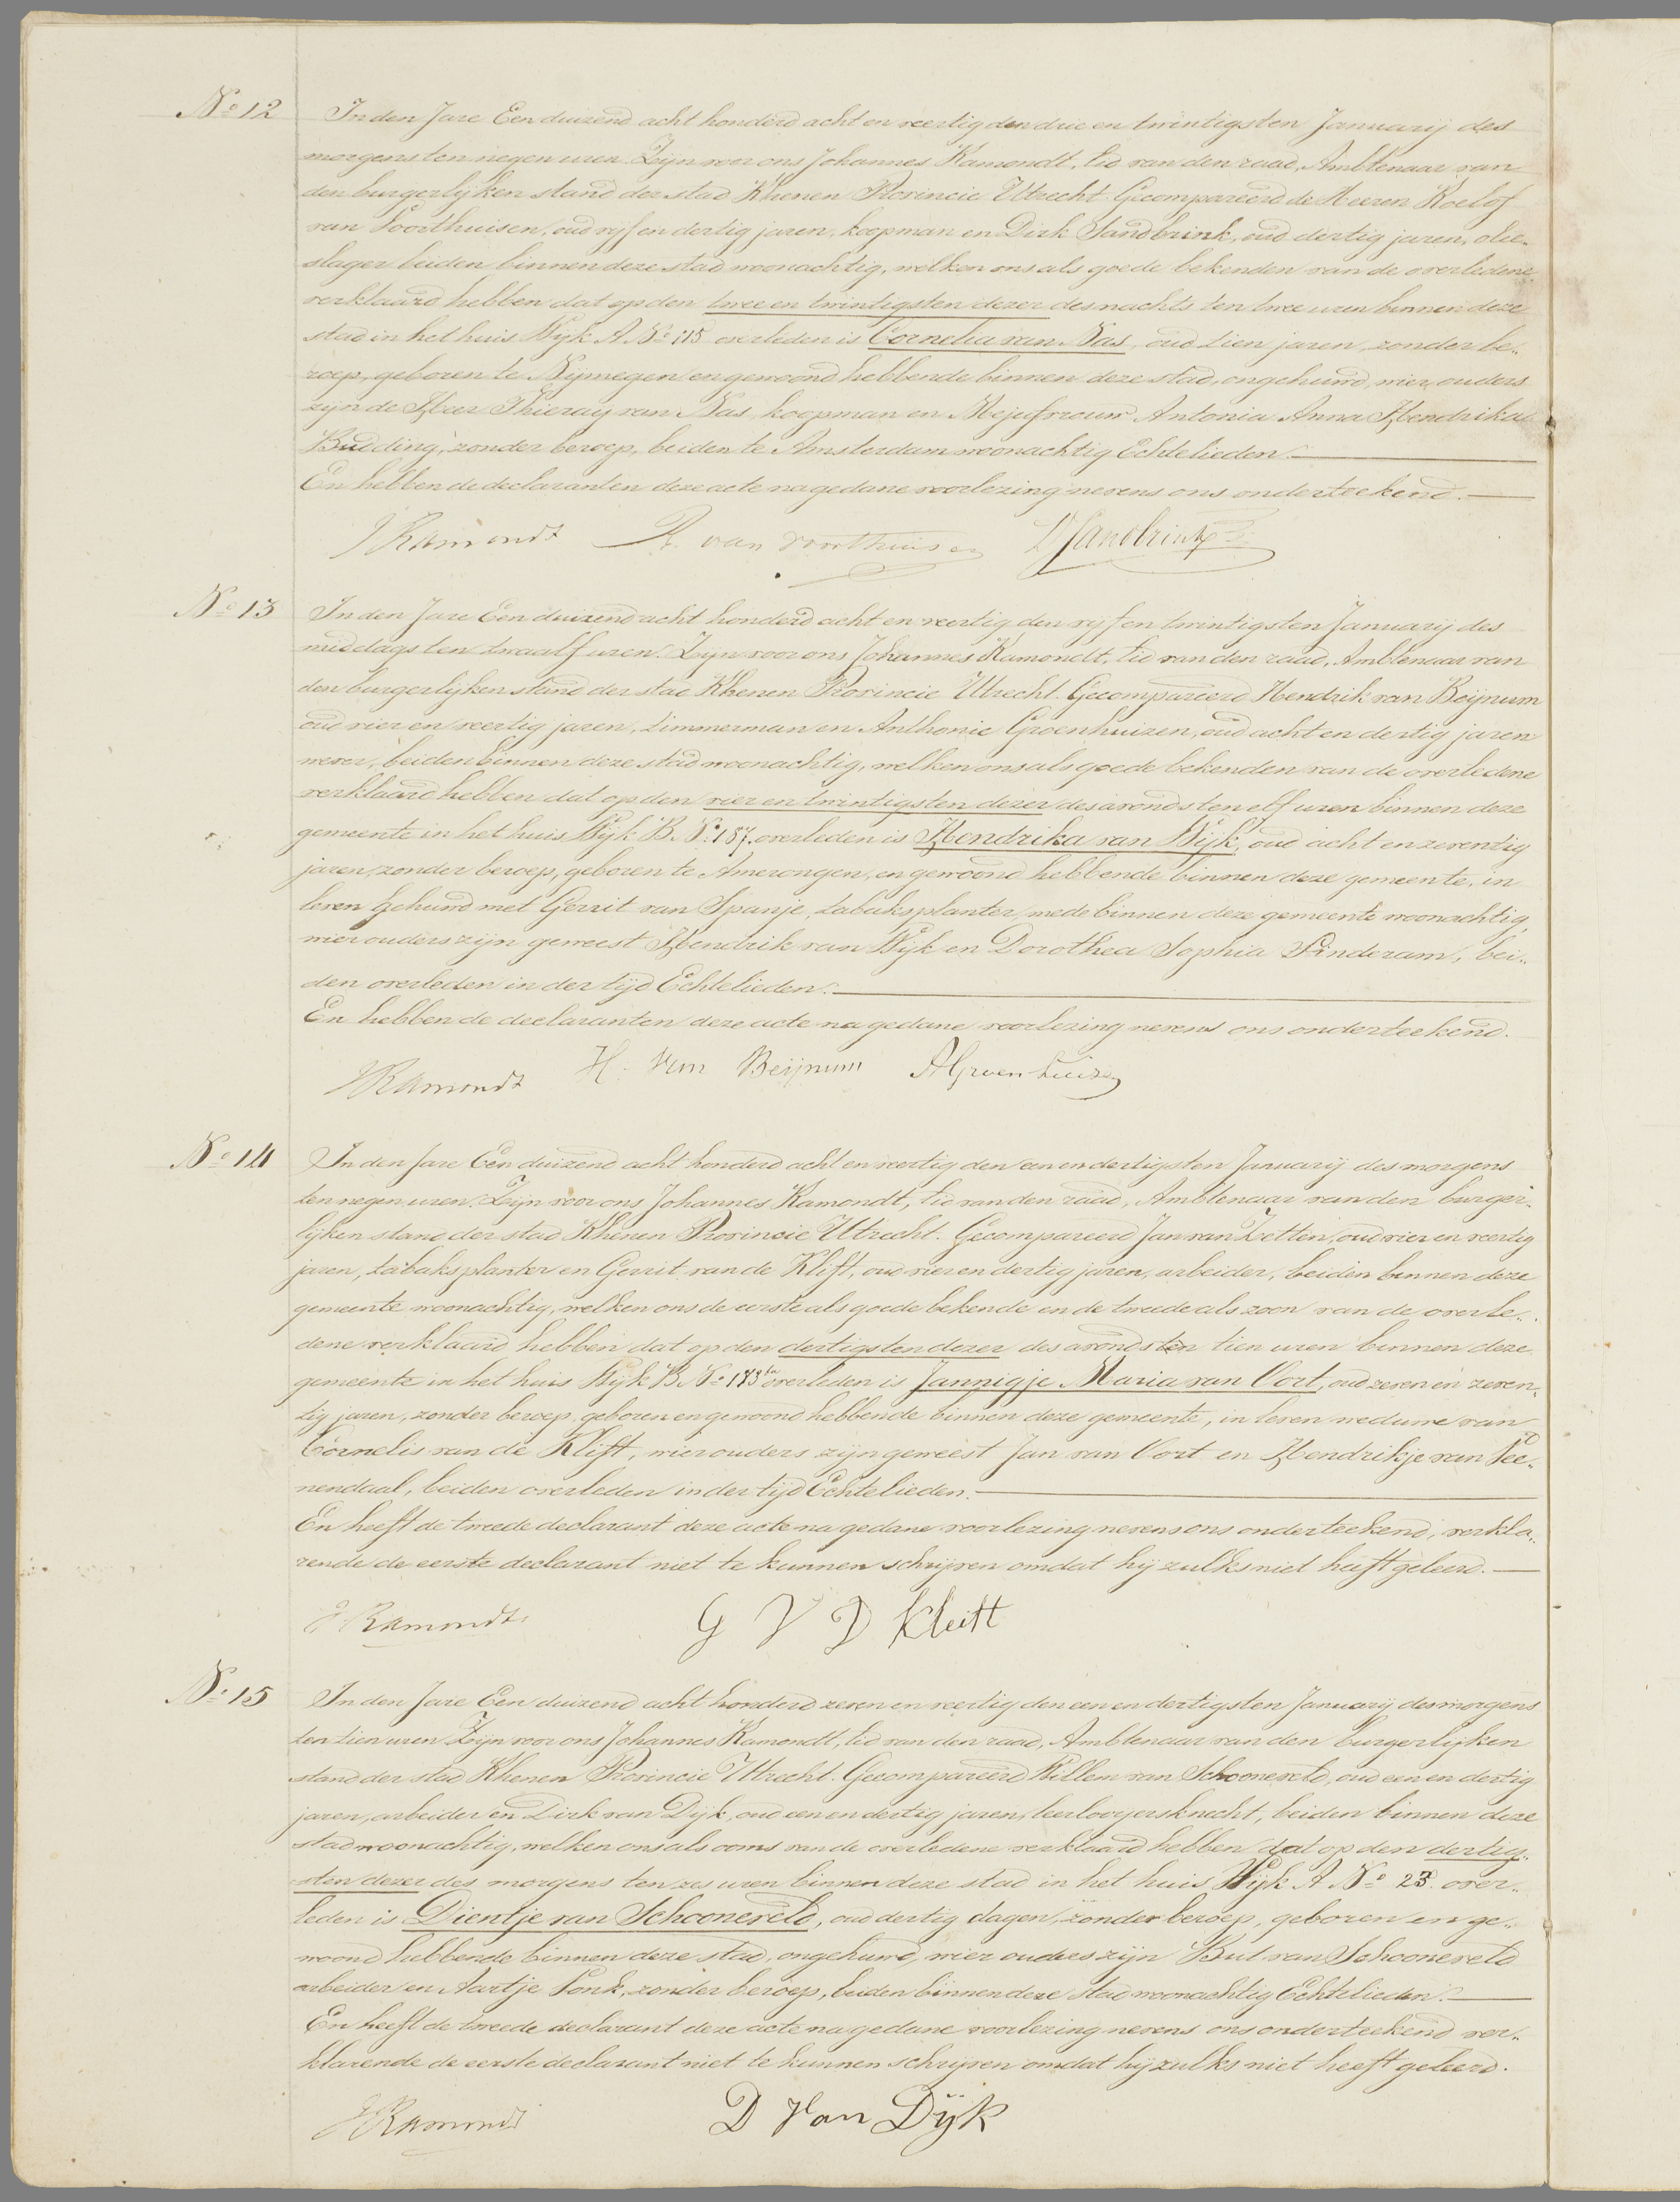 No 12
In den Jare Een duizend acht honderd acht en veertig den drie en twintigsten Januarij des
morgens ten negen uren. Zijn voor ons Johannes Ramondt, lid van den raad, Ambtenaar van
den burgerlijken stand der stad Rhenen Provincie Utrecht. Gecompareerd de Heeren Roelof
van Voorthuisen, oud vijf en dertig jaren, koopman en Dirk Sandbrink, oud dertig jaren, olie„
slager beiden binnen deze stad woonachtig, welken ons als goede bekenden van de overledene
verklaard hebben dat op den twee en twintigsten dezer des nachts ten twee uren binnen deze
stad in het huis Wijk A No 115 overleden is Cornelia van Nas, oud tien jaren, zonder be„
roep, geboren te Nijmegen en gewoond hebbende binnen deze stad, ongehuwd, wier ouders
zijn de Heer Thieray van Nas, koopman en Mejufvrouw Antonia Anna Hendrika
Budding, zonder beroep, beiden te Amsterdam woonachtig Echtelieden.
En hebben de declaranten deze acte na gedane voorlezing nevens ons onderteekend.
J Ramondt R. van Voorthuisen D Sandbrink
No 13
In den Jare Een duizend acht honderd acht en veertig den vijf en twintigsten Januarij des
middags ten twaalf uren. Zijn voor ons Johannes Ramondt, lid van den raad, Ambtenaar van
den burgerlijken stand der stad Rhenen Provincie Utrecht. Gecompareerd Hendrik van Beijnum
oud vier en veertig jaren, timmerman en Anthonie Groenhuizen, oud acht en dertig jaren
wever, beiden binnen deze stad woonachtig, welken ons als goede bekenden van de overledene
verklaard hebben dat op den vier en twintigsten dezer des avonds ten elf uren binnen deze
gemeente in het huis Wijk B. No 187. overleden is Hendrika van Wijk, oud acht en zeventig
jaren, zonder beroep, geboren te Amerongen, en gewoond hebbende binnen deze gemeente, in
leven gehuwd met Gerrit van Spanje, tabaksplanter, mede binnen deze gemeente woonachtig,
wier ouders zijn geweest Hendrik van Wijk en Dorothea Sophia Pinderam, bei„
den overleden in der tijd Echtelieden.
En hebben de declaranten deze acte na gedane voorlezing nevens ons onderteekend.
J Ramondt H. van Beijnum A Groenhuizen
No 14
In den Jare Een duizend acht honderd acht en veertig den een en dertigsten Januarij des morgens
ten negen uren. Zijn voor ons Johannes Ramondt, lid van den raad, Ambtenaar van den burger„
lijken stand der stad Rhenen Provincie Utrecht. Gecompareerd Jan van Zetten, oud vier en veertig
jaren, tabaksplanter en Gerrit van de Klift, oud vier en dertig jaren, arbeider, beiden binnen deze
gemeente woonachtig, welken ons de eerste als goede bekende en de tweede als zoon van de overle„
dene verklaard hebben dat op den dertigsten dezer des avonds ten tien uren binnen deze
gemeente in het huis Wijk B No 173 overleden is Jannigje Maria van Oort, oud zeven en zeven„
tig jaren, zonder beroep, geboren en gewoond hebbende binnen deze gemeente, in leven weduwe van
Cornelis van de Klift, wier ouders zijn geweest Jan van Oort en Hendrikje van Vee„
nendaal, beiden overleden in der tijd Echtelieden.
En heeft de tweede declarant deze acte na gedane voorlezing nevens ons onderteekend, verkla„
rende de eerste declarant niet te kunnen schrijven omdat hij zulks niet heeft geleerd.
J Ramondt G V D Kleift
No 15
In den Jare Een duizend acht honderd zeven en veertig den een en dertigsten Januarij des morgens
ten tien uren Zijn voor ons Johannes Ramondt, lid van den raad, Ambtenaar van den burgerlijken
stand der stad Rhenen Provincie Utrecht. Gecompareerd Willem van Schooneveld, oud een en dertig
jaren, arbeider en Dirk van Dijk, oud een en dertig jaren, leerlooyersknecht, beiden binnen deze
stad woonachtig, welken ons als ooms van de overledene verklaard hebben dat op den dertig„
sten dezer des morgens ten zes uren binnen deze stad in het huis Wijk A No 23. over„
leden is Dientje van Schooneveld, oud dertig dagen, zonder beroep, geboren en ge„
woond hebbende binnen deze stad, ongehuwd, wier ouders zijn Bul van Schooneveld
arbeider en Aartje Vonk, zonder beroep, beiden binnen deze stad woonachtig Echtelieden.
En heeft de tweede declarant deze acte na gedane voorlezing nevens ons onderteekend ver„
klarende de eerste declarant niet te kunnen schrijven omdat hij zulks niet heeft geleerd.
J Ramondt D Van Dijk